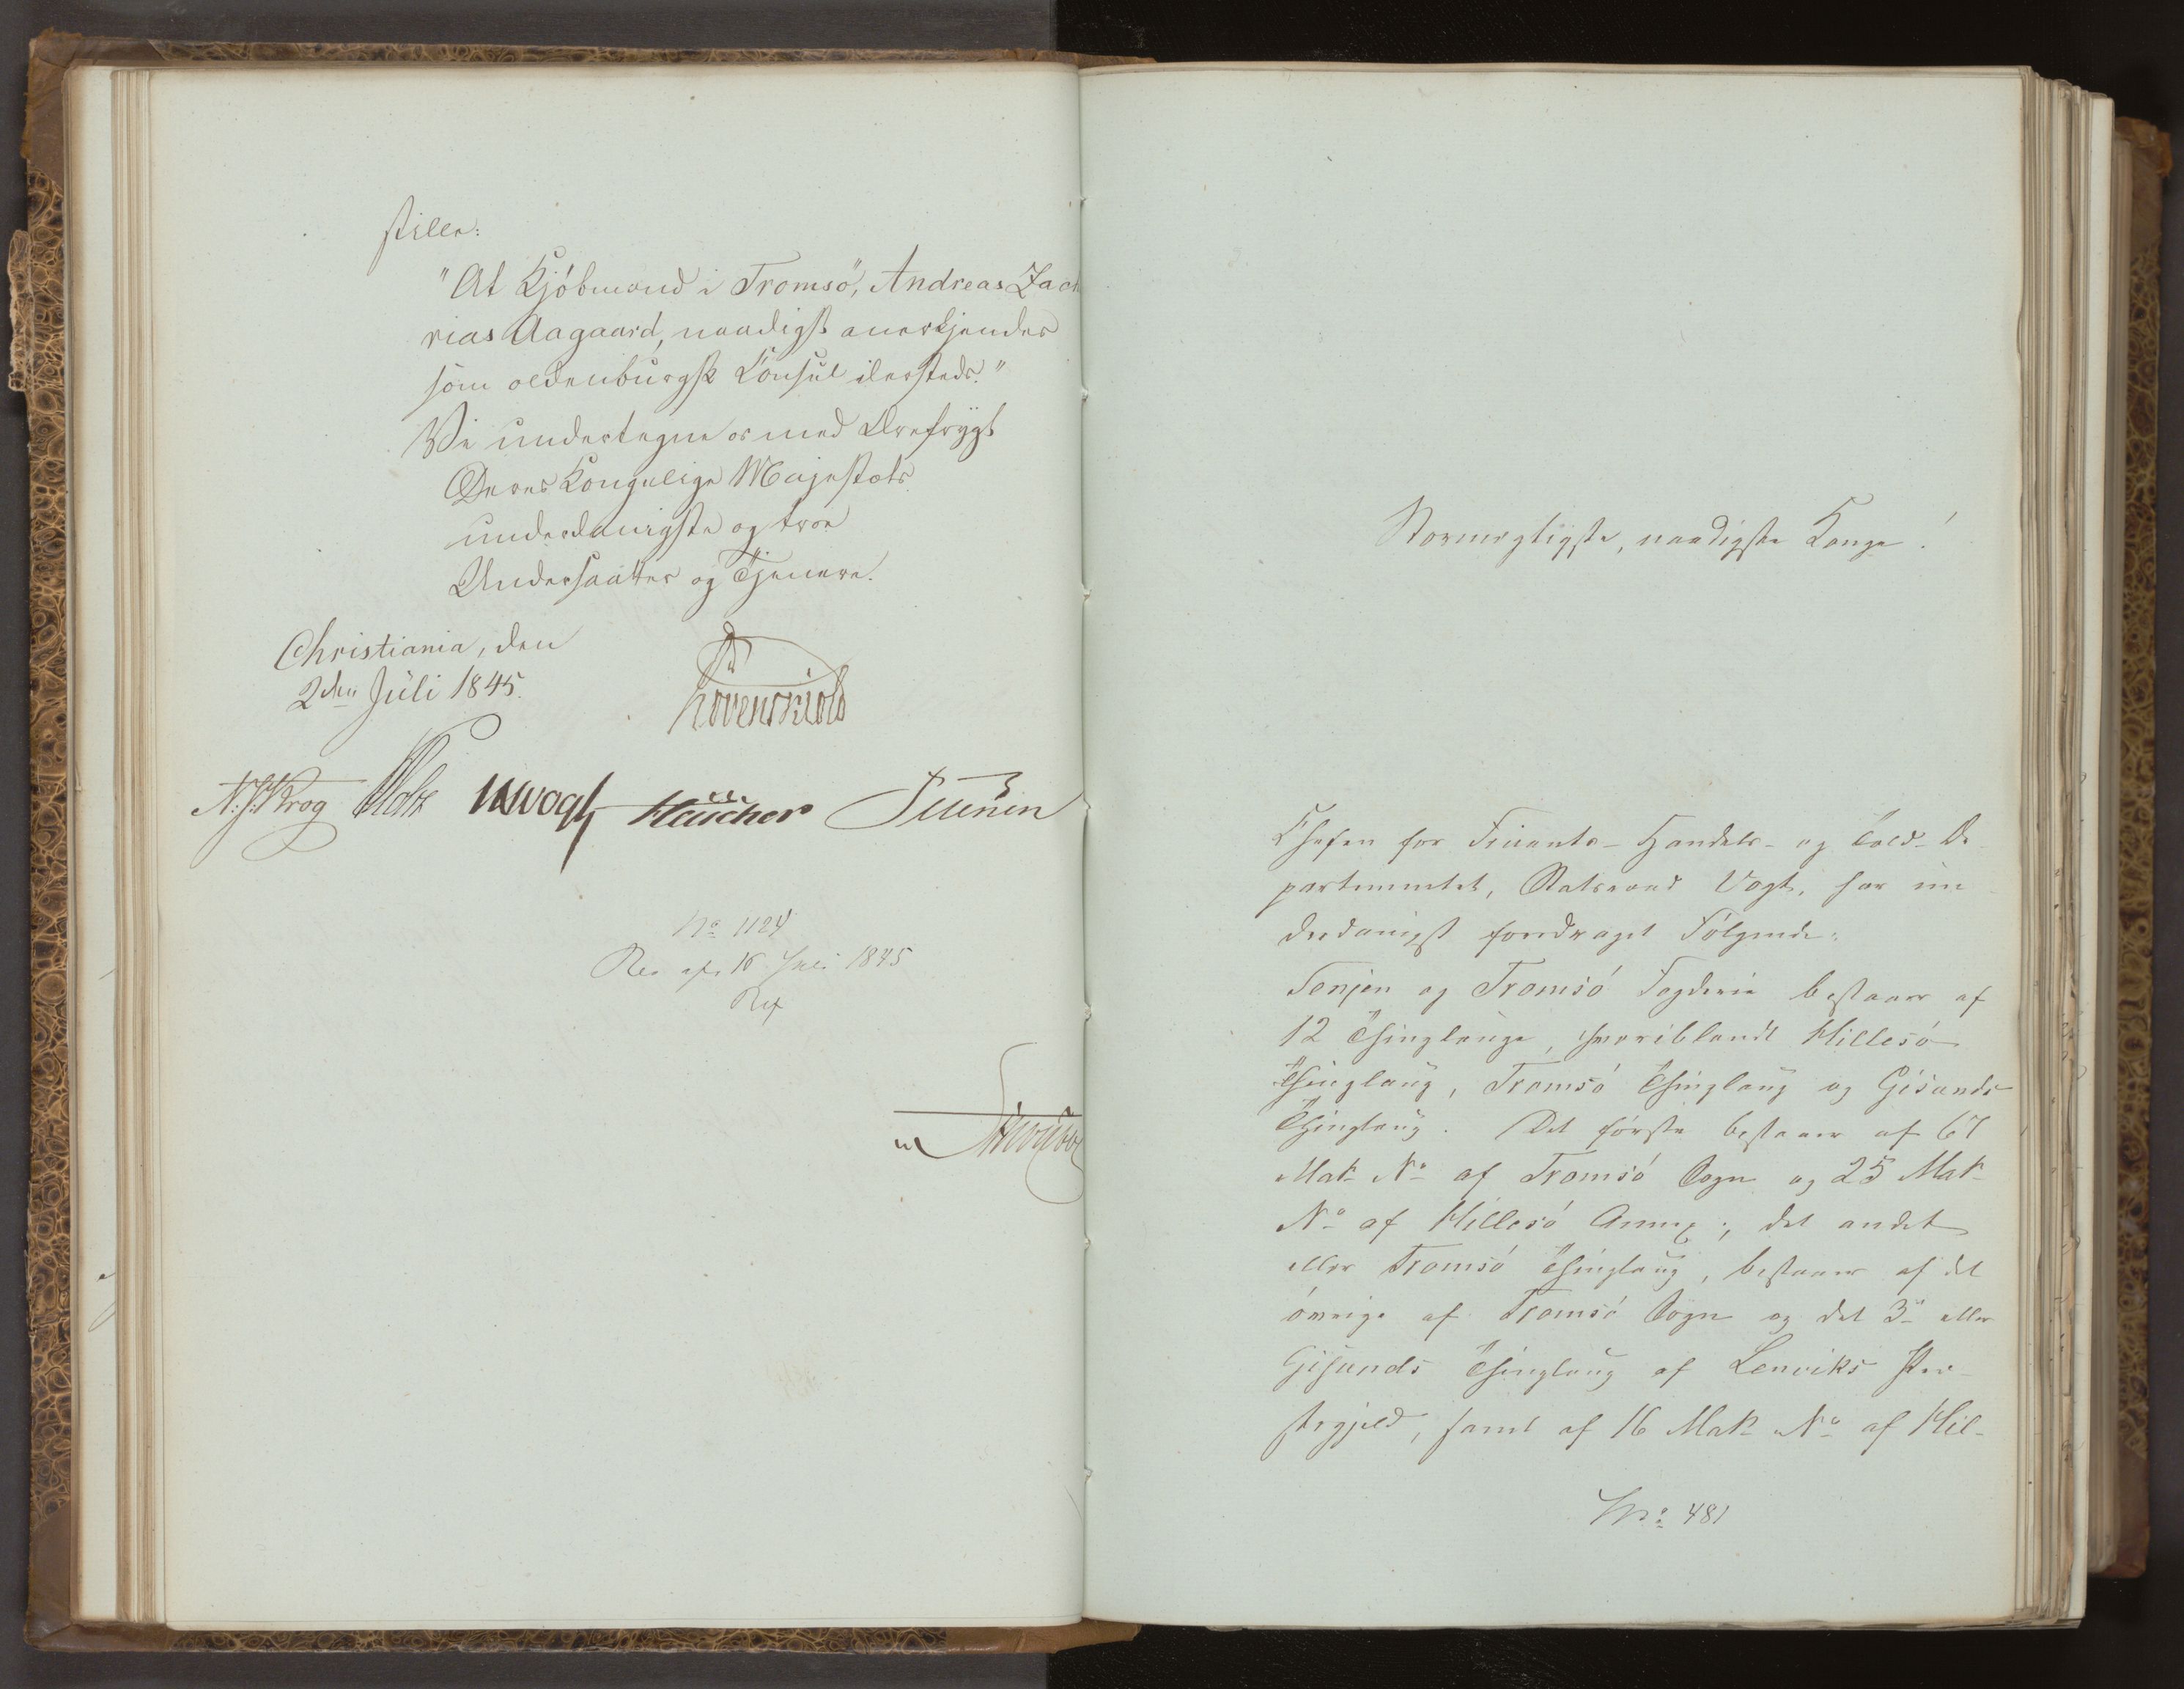 stille:
"At Kjöbmand i Tromsö, Andreas Zach
rias Aagaard, naadigst anerkjendes
som oldenburgsk Consul dersteds."
Vi undertegne os med Ærefrygt
Deres Kongelige Majestæts
underdanigste og troe
Undersaatter og Tjenere.
Christiania, den
2den Juli 1845.
Løvenskiold
N. J. Krog Holst Vogt
No 1124
Res af 16 Juli 1845
Stormægtigste, naadigste Konge!
Chefen for Finants- Handels- og Told-De
partementet, Statsraad Vogt, har un
derdanigst foredraget Følgende:
Senjen og Tromsö Fogderie bestaaer af
12 Thinglauge, hvoriblandt Hillesö
Thinglaug, Tromsö Thinglaug og Gisunds
Thinglaug. Det første bestaaer af 67
Mat. No af Tromsö Sogn og 25 Mat.
No af Hillesö Annex; det andet
eller Tromsö Thinglaug, bestaaer af det
øvrige af Tromsö Sogn og det 3die eller
Gisunds Thinglaug af Lenviks Præ
stegjeld, samt af 16 Mat. No af Hil-
No 481